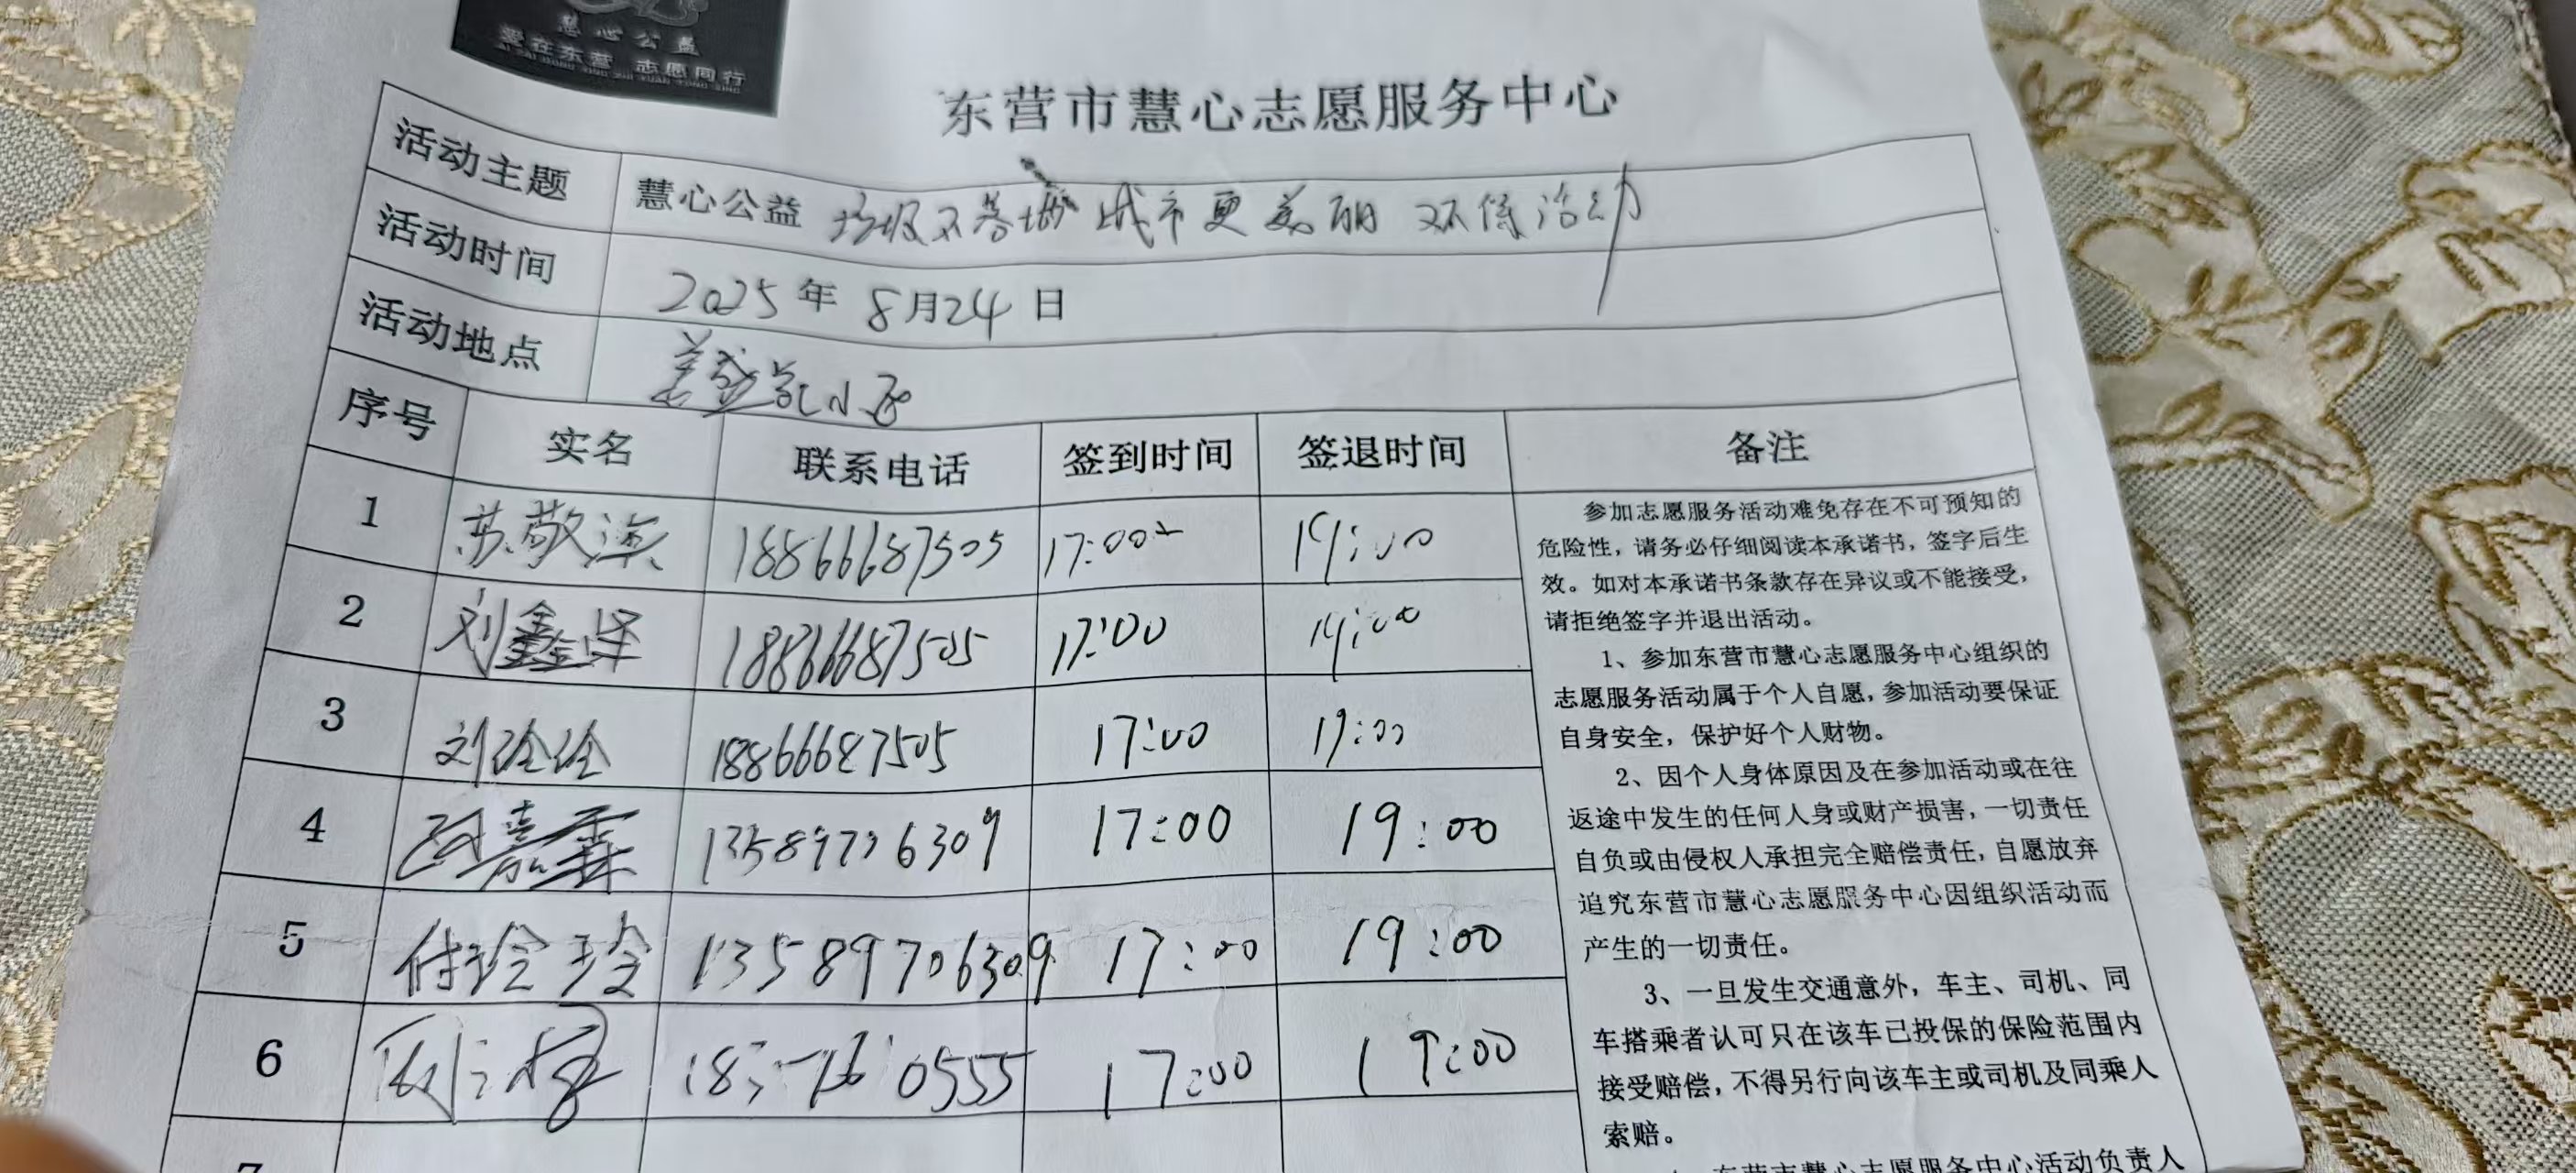 慧心公益
爱在东营 志愿同行
东营市慧心志愿服务中心
活动主题 慧心公益 垃圾不落地 城市更美丽 环保活动
活动时间 2025年8月24日
活动地点 小区
序号 实名 联系电话 签到时间 签退时间 备注
1 苏敬 18866687505 17:00 19:00
2 刘鑫泽 18866687505 17:00 19:00
3 刘 18866687505 17:00 19:00
4 嘉霖 13589706309 17:00 19:00
5 付玲玲 13589706309 17:00 19:00
6 0555 17:00 19:00
7
参加志愿服务活动难免存在不可预知的
危险性，请务必仔细阅读本承诺书，签字后生
效。如对本承诺书条款存在异议或不能接受，
请拒绝签字并退出活动。
1、参加东营市慧心志愿服务中心组织的
志愿服务活动属于个人自愿，参加活动要保证
自身安全，保护好个人财物。
2、因个人身体原因及在参加活动或在往
返途中发生的任何人身或财产损害，一切责任
自负或由侵权人承担完全赔偿责任，自愿放弃
追究东营市慧心志愿服务中心因组织活动而
产生的一切责任。
3、一旦发生交通意外，车主、司机、同
车搭乘者认可只在该车已投保的保险范围内
接受赔偿，不得另行向该车主或司机及同乘人
索赔。
东营市慧心志愿服务中心活动负责人